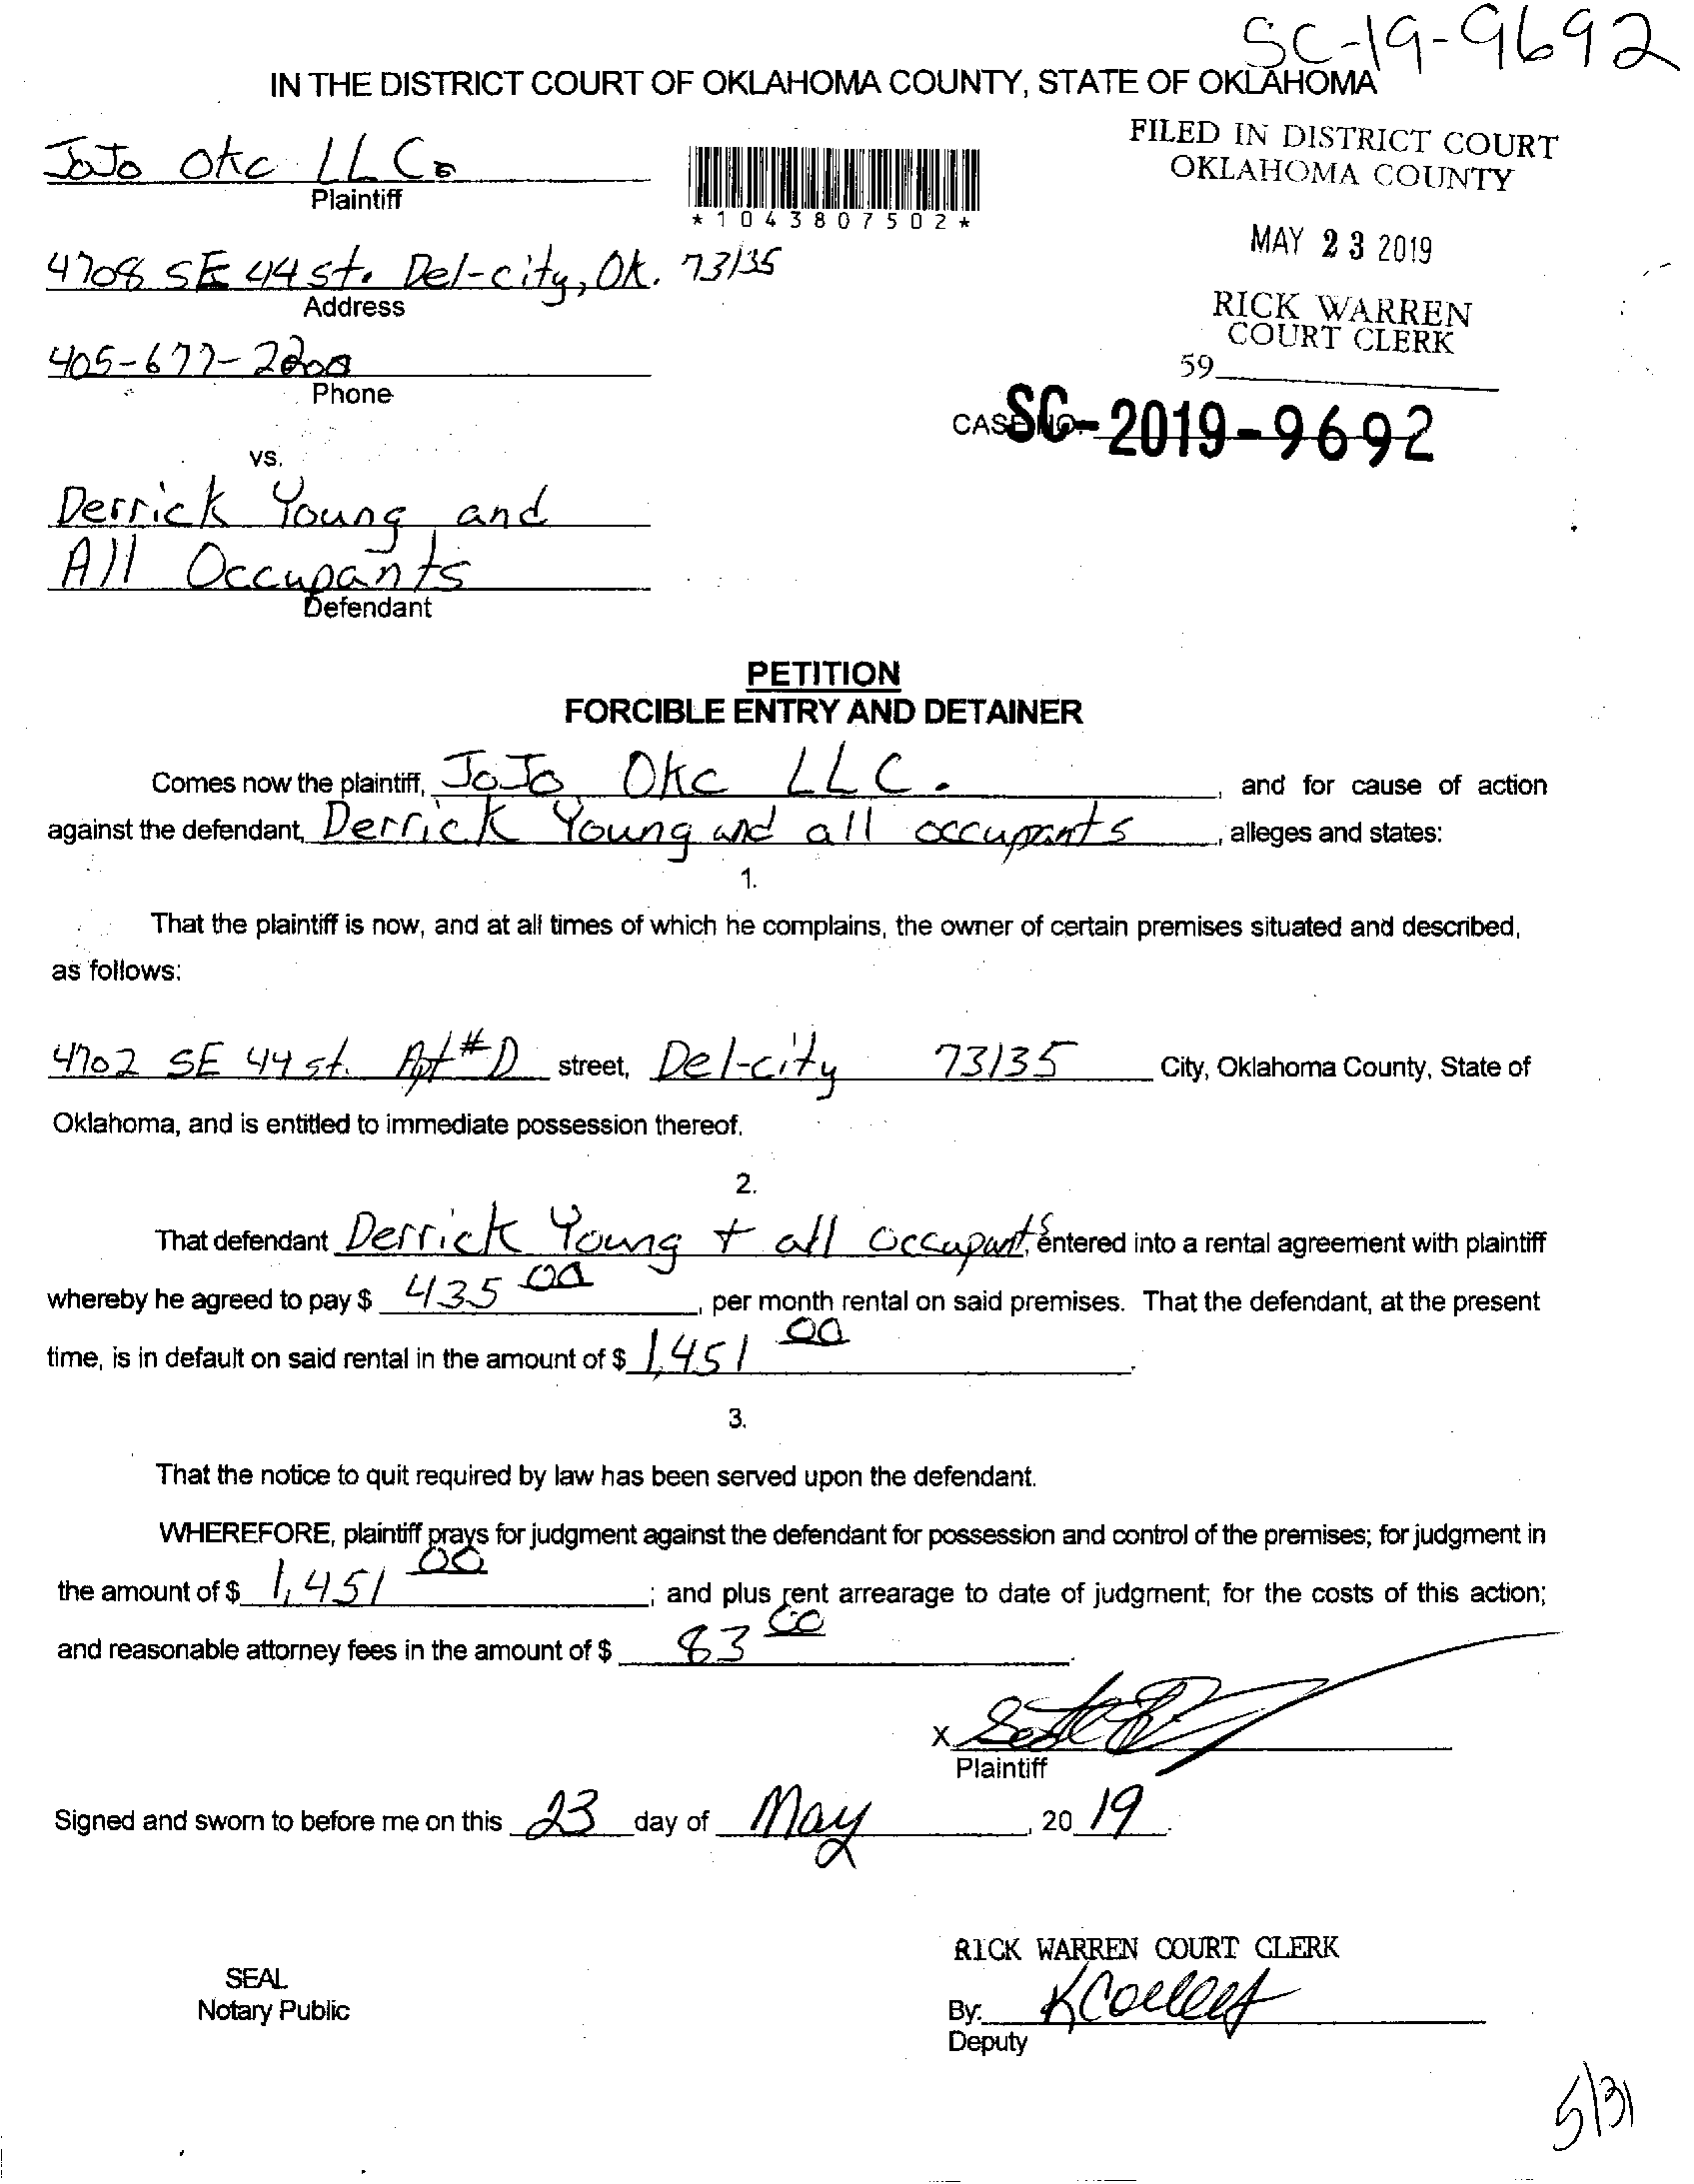 SC-19-9692
IN THE DISTRICT COURT OF OKLAHOMA COUNTY, STATE OF OKLAHOMA
JoJo Okc LLC.
Plaintiff
*1043807502*
FILED IN DISTRICT COURT
OKLAHOMA COUNTY
MAY 23 2019
RICK WARREN
COURT CLERK
59
4708 SE 44 st. Del-city, Ok. 73135
Address
405-677-2200
Phone
CASE NO. SC-2019-9692
vs.
Derrick Young and
All Occupants
Defendant
PETITION
FORCIBLE ENTRY AND DETAINER
Comes now the plaintiff, JoJo Okc LLC. , and for cause of action
against the defendant, Derrick Young and all occupants , alleges and states:
1.
That the plaintiff is now, and at all times of which he complains, the owner of certain premises situated and described,
as follows:
4702 SE 44 st. Apt #D street, Del-city 73135 City, Oklahoma County, State of
Oklahoma, and is entitled to immediate possession thereof.
2.
That defendant Derrick Young + all Occupants, entered into a rental agreement with plaintiff
whereby he agreed to pay $ 435 00 , per month rental on said premises. That the defendant, at the present
time, is in default on said rental in the amount of $ 1,451 00 .
3.
That the notice to quit required by law has been served upon the defendant.
WHEREFORE, plaintiff prays for judgment against the defendant for possession and control of the premises; for judgment in
the amount of $ 1,451 00 ; and plus rent arrearage to date of judgment; for the costs of this action;
and reasonable attorney fees in the amount of $ 83 00 .
X
Plaintiff
Signed and sworn to before me on this 23 day of May , 20 19 .
RICK WARREN COURT CLERK
SEAL
Notary Public
By:
Deputy
5/31